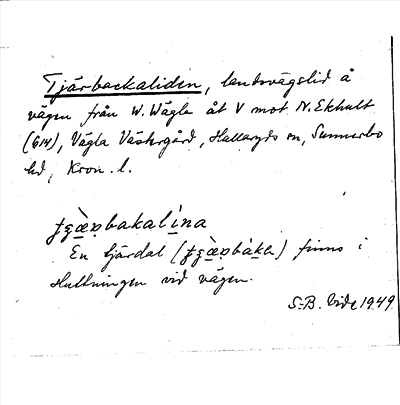 Tjärbackaliden, landsvägslid å
vägen från W. Vägla åt V mot N. Ekhult
(614), Vägla Västergård, Hallaryds sn, Sunnerbo
hd, Kron. l.
bakalína
En tjärdal () finns i
sluttningen vid vägen.
S-B. Vide 1949